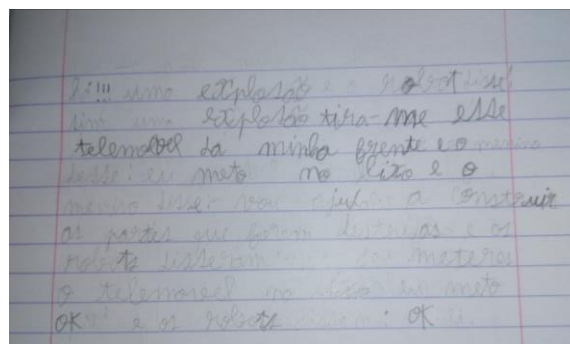 uma explosão e o robot disse:
uma explosão tira-me esse
telemovel da minha frente e o menino
disse: eu meto no lixo e o
menino disse: vou ajudar a construir
as partes que foram destruidas e os
robots disseram meteres
o telemovel no lixo eu meto
OK e os robots disseram: OK